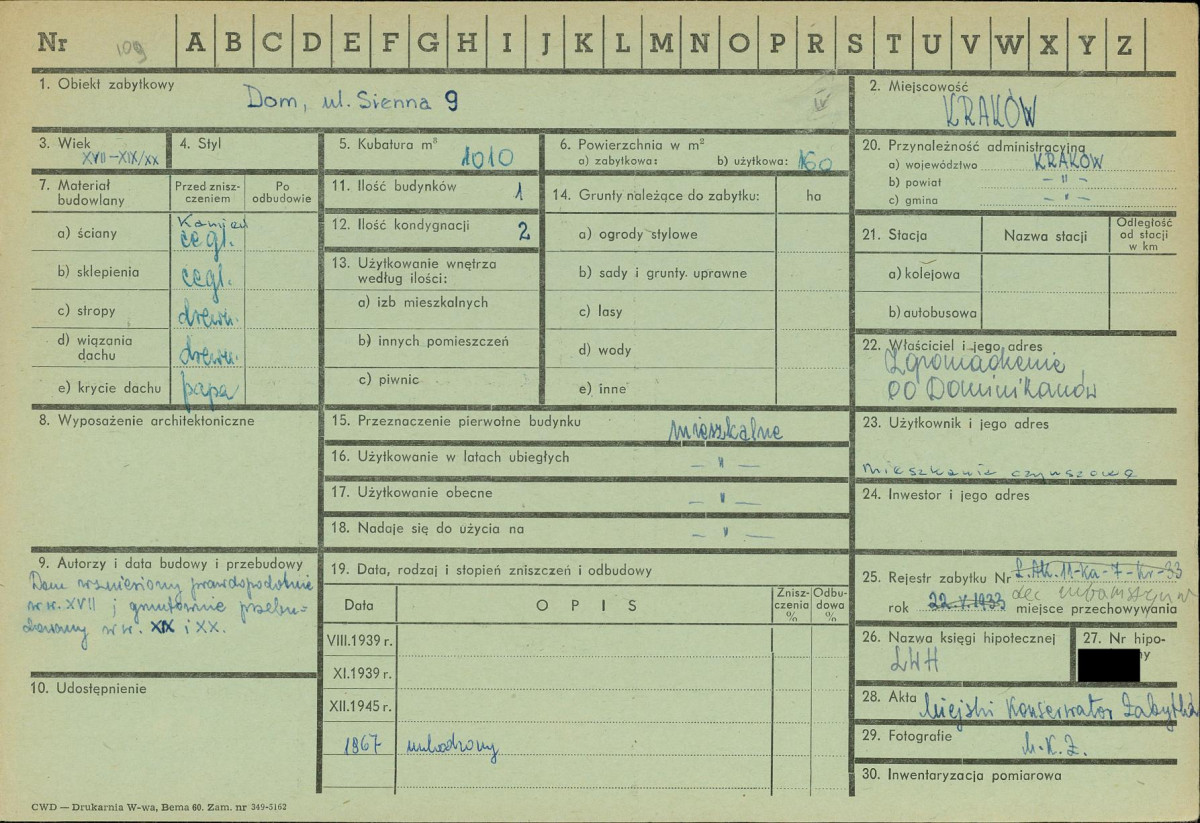 Nr 109 A B C D E F G H I J K L M N O P R S T U V W X Y Z
1. Obiekt zabytkowy
Dom, ul. Sienna 9
IV
2. Miejscowość
KRAKÓW
3. Wiek
XVII-XIX/XX
4. Styl
5. Kubatura m³
1010
6. Powierzchnia w m²
a) zabytkowa: b) użytkowa: 160
20. Przynależność administracyjna
a) województwo KRAKÓW
b) powiat — " —
c) gmina — " —
7. Materiał budowlany
Przed zniszczeniem
Po odbudowie
a) ściany Kamień cegl.
b) sklepienia cegl.
c) stropy drewn.
d) wiązania dachu drewn.
e) krycie dachu papa
11. Ilość budynków 1
12. Ilość kondygnacji 2
13. Użytkowanie wnętrza
według ilości:
a) izb mieszkalnych
b) innych pomieszczeń
c) piwnic
14. Grunty należące do zabytku: ha
a) ogrody stylowe
b) sady i grunty uprawne
c) lasy
d) wody
e) inne
21. Stacja
Nazwa stacji
Odległość od stacji w km
a) kolejowa
b) autobusowa
22. Właściciel i jego adres
Zgromadzenie
OO Dominikanów
8. Wyposażenie architektoniczne
15. Przeznaczenie pierwotne budynku mieszkalne
16. Użytkowanie w latach ubiegłych — " —
17. Użytkowanie obecne — " —
18. Nadaje się do użycia na — " —
23. Użytkownik i jego adres
mieszkania czynszowe
24. Inwestor i jego adres
9. Autorzy i data budowy i przebudowy
Dom wzniesiony prawdopodobnie
w w. XVII i gruntownie przebu-
dowany w w. XIX i XX.
10. Udostępnienie
19. Data, rodzaj i stopień zniszczeń i odbudowy
Data
OPIS
Zniszczenia %
Odbudowa %
VIII.1939 r.
XI.1939 r.
XII.1945 r.
1967 uszkodzony
25. Rejestr zabytku Nr L.Ak.11-Ka-7-Kr-33
rok 22.V.1933 miejsce przechowywania
26. Nazwa księgi hipotecznej
LWH
27. Nr hipo-
28. Akta Miejski Konserwator Zabytków
29. Fotografie
M.K.Z.
30. Inwentaryzacja pomiarowa
CWD — Drukarnia W-wa, Bema 60. Zam. nr 349-5162